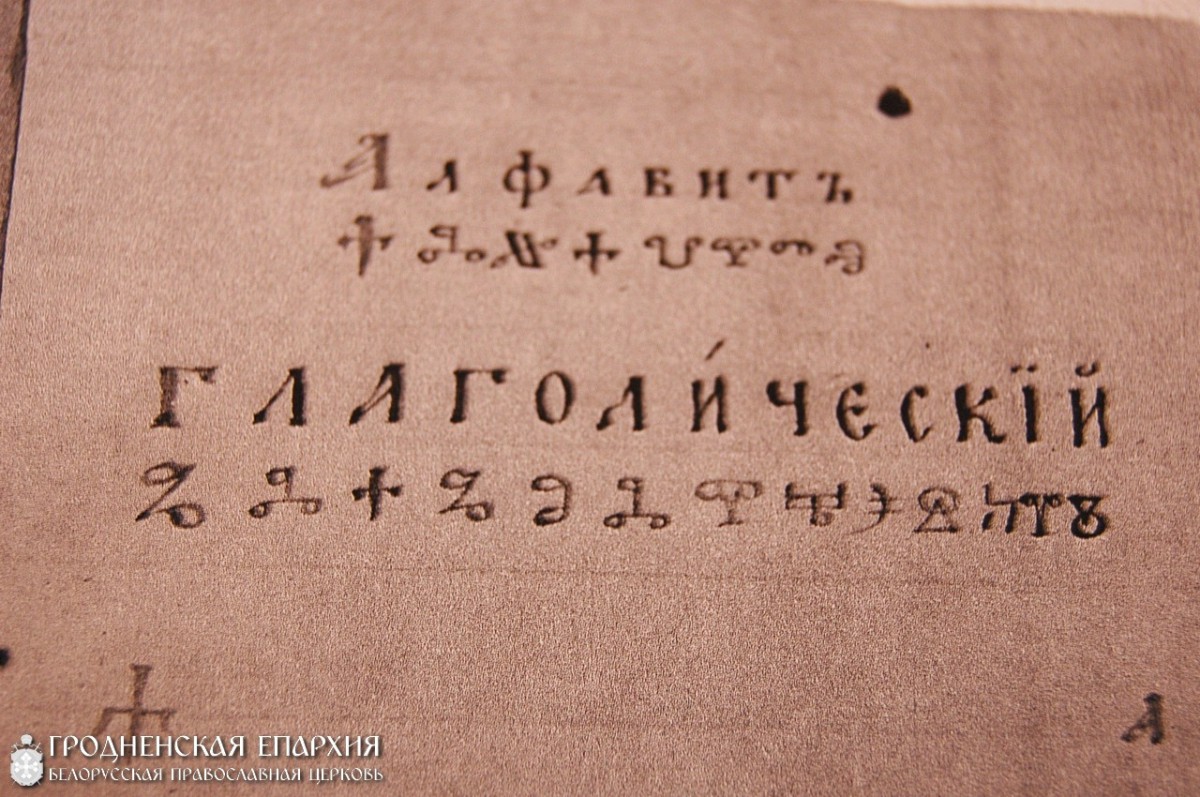 Алфавитъ
ⰰⰾⱇⰰⰲⰹⱅⱏ
ГЛАГОЛИ́ЧЕСКЇЙ
ⰳⰾⰰⰳⱁⰾⰹⱍⰵⱄⰽⰹⰺ
ⰰ А
ГРОДНЕНСКАЯ ЕПАРХИЯ
БЕЛОРУССКАЯ ПРАВОСЛАВНАЯ ЦЕРКОВЬ